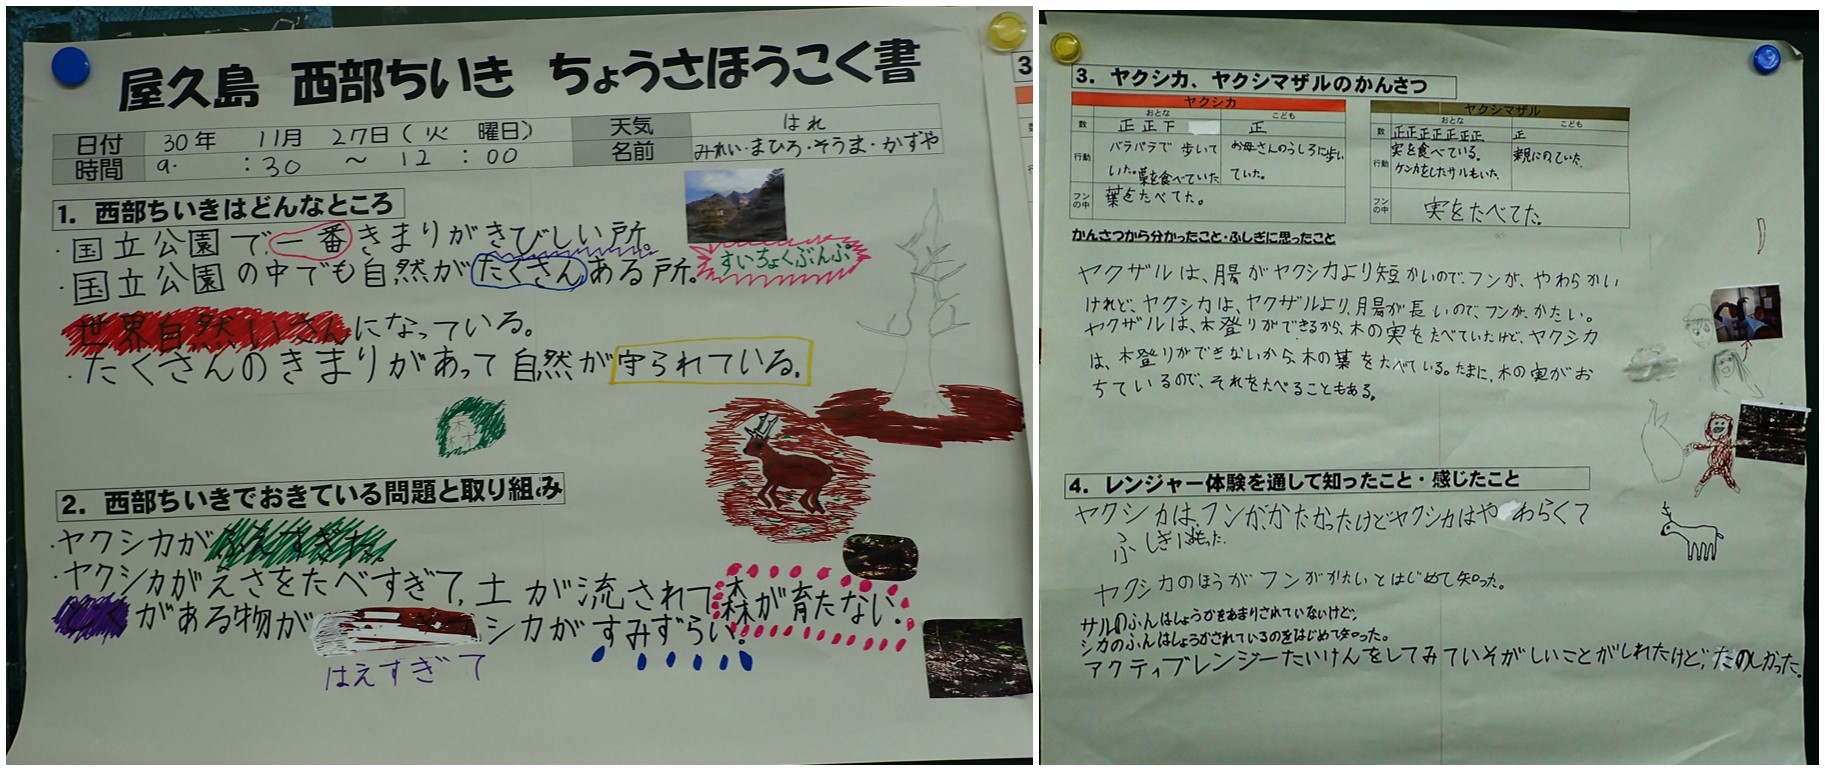 屋久島 西部ちいき ちょうさほうこく書
日付 30年 11月 27日(火 曜日) 天気 はれ
時間 9. :30 ~ 12 : 00 名前 みれい・まひろ・そうま・かずや
1. 西部ちいきはどんなところ
・国立公園で一番きまりがきびしい所。
・国立公園の中でも自然がたくさんある所。
すいちょくぶんぷ
世界自然いさんになっている。
・たくさんのきまりがあって自然が守られている。
2. 西部ちいきでおきている問題と取り組み
・ヤクシカがふえすぎた。
・ヤクシカがえさをたべすぎて,土が流されて森が育たない。
どくがある物が シカがすみずらい。
はえすぎて
3. ヤクシカ、ヤクシマザルのかんさつ
ヤクシカ
おとな こども
数 正正下 正
行動 バラバラで歩いていた。葉を食べていた お母さんのうしろに歩いていた。
フンの中 葉をたべてた。
ヤクシマザル
おとな こども
数 正正正正正正正 正
行動 実を食べている。ケンカをしたサルもいた。 親にのっていた。
フンの中 実をたべてた。
かんさつから分かったこと・ふしぎに思ったこと
ヤクザルは、腸がヤクシカより短かいので、フンが、やわらかい
けれど、ヤクシカは、ヤクザルより、腸が長いので、フンが、かたい。
ヤクザルは、木登りができるから、木の実をたべていたけど、ヤクシカ
は、木登りができないから、木の葉をたべている。たまに、木の実がお
ちているので、それをたべることもある。
4. レンジャー体験を通して知ったこと・感じたこと
ヤクシカは、フンが、かたかったけどヤクシカはやわらくて
ふしぎに思った。
ヤクシカのほうがフンがかたいとはじめて知った。
サルのふんはしょうかをあまりされていないけど,
シカのふんはしょうかされているのをはじめて知った。
アクティブレンジーたいけんをしてみていそがしいことがしれたけど,たのしかった。